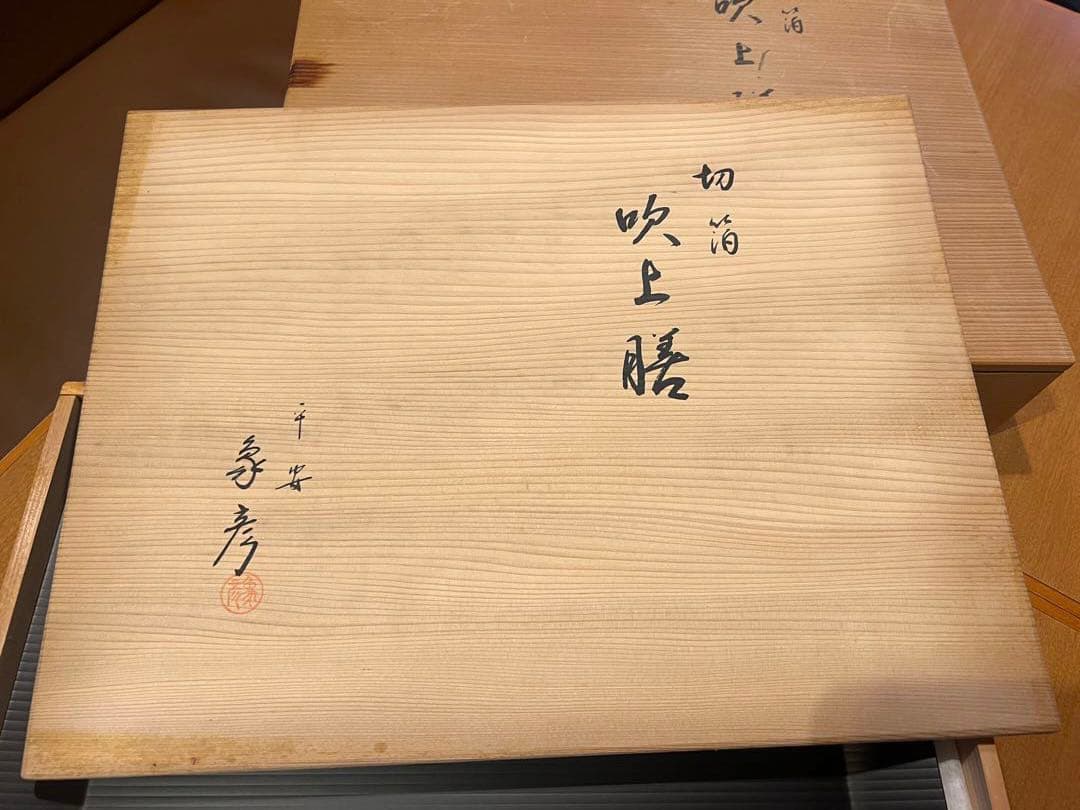 切箔
吹上膳
平安
象彦
箔
吹上